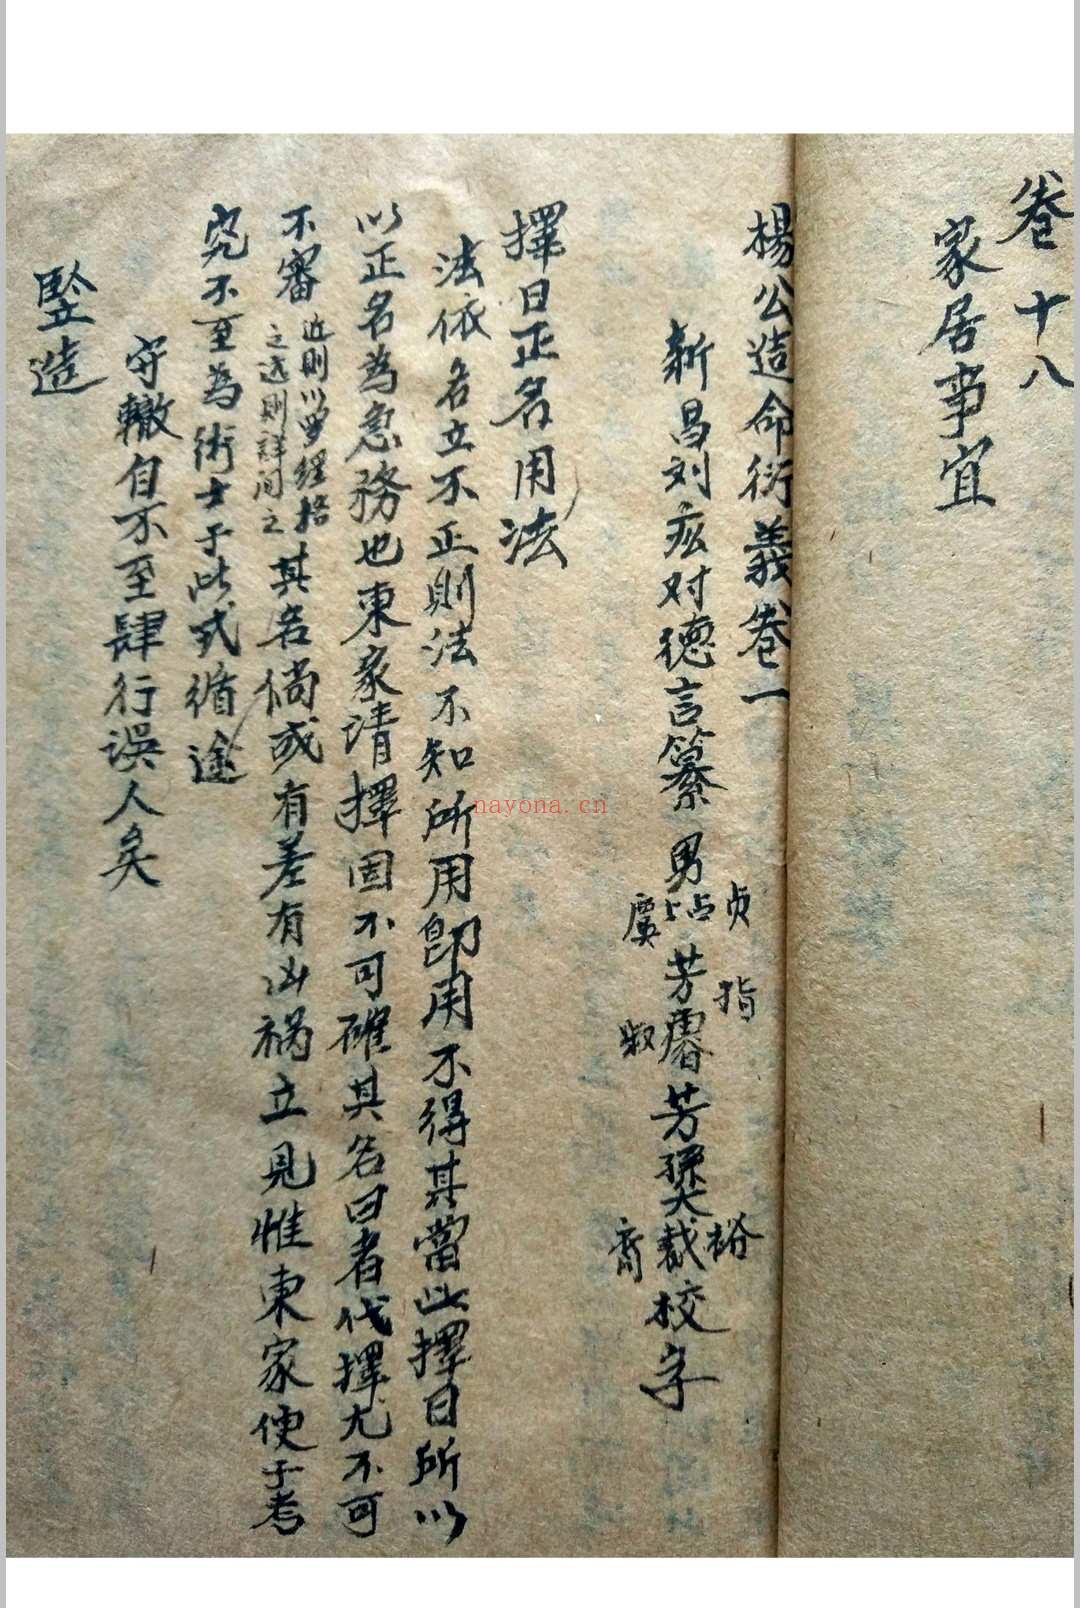 卷十八
家居事宜
楊公造命衍義卷一
新昌刘 对德言纂 男 芳 芳 校字
贞 指 裕
虞 淑 裔
擇日正名用法
法依名立不正則法不知所用卽用不得其當此擇日所以
以正名為急務也東家請擇固不可確其名曰者代擇尤不可
不審 近則以 經 之 則詳 之 其名倘或有差有凶祸立見惟東家使于考
究不至為術士于此式循途
守轍自不至肆行误人矣
竪造
nayona.cn